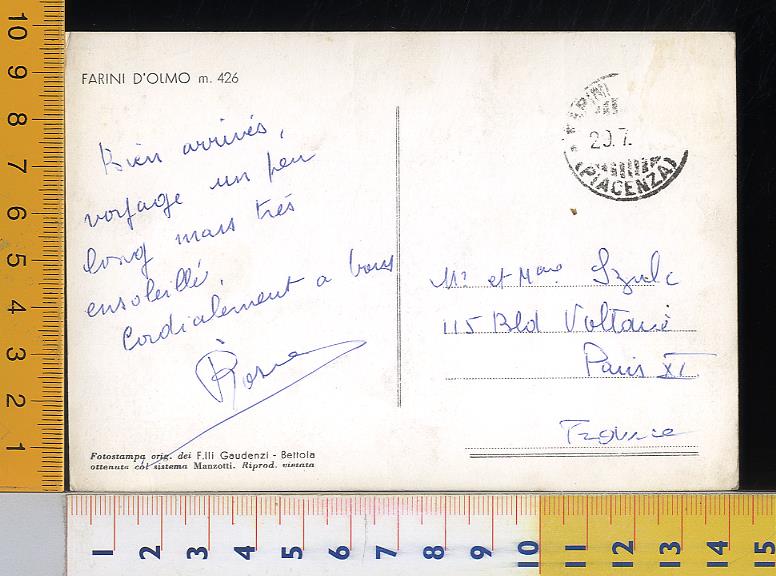 FARINI D'OLMO m. 426
Bien arrivés,
voyage un peu
long mais très
ensoleillé
Cordialement a vous
FARINI
20.7.
(PIACENZA)
Mr et Mme Szulc
115 Bld Voltaire
Paris XI
France
Fotostampa orig. dei F.lli Gaudenzi - Bettola
ottenuta col sistema Manzotti. Riprod. vietata
10
9
8
7
6
5
4
3
2
1
1 2 3 4 5 6 7 8 9 10 11 12 13 14 15